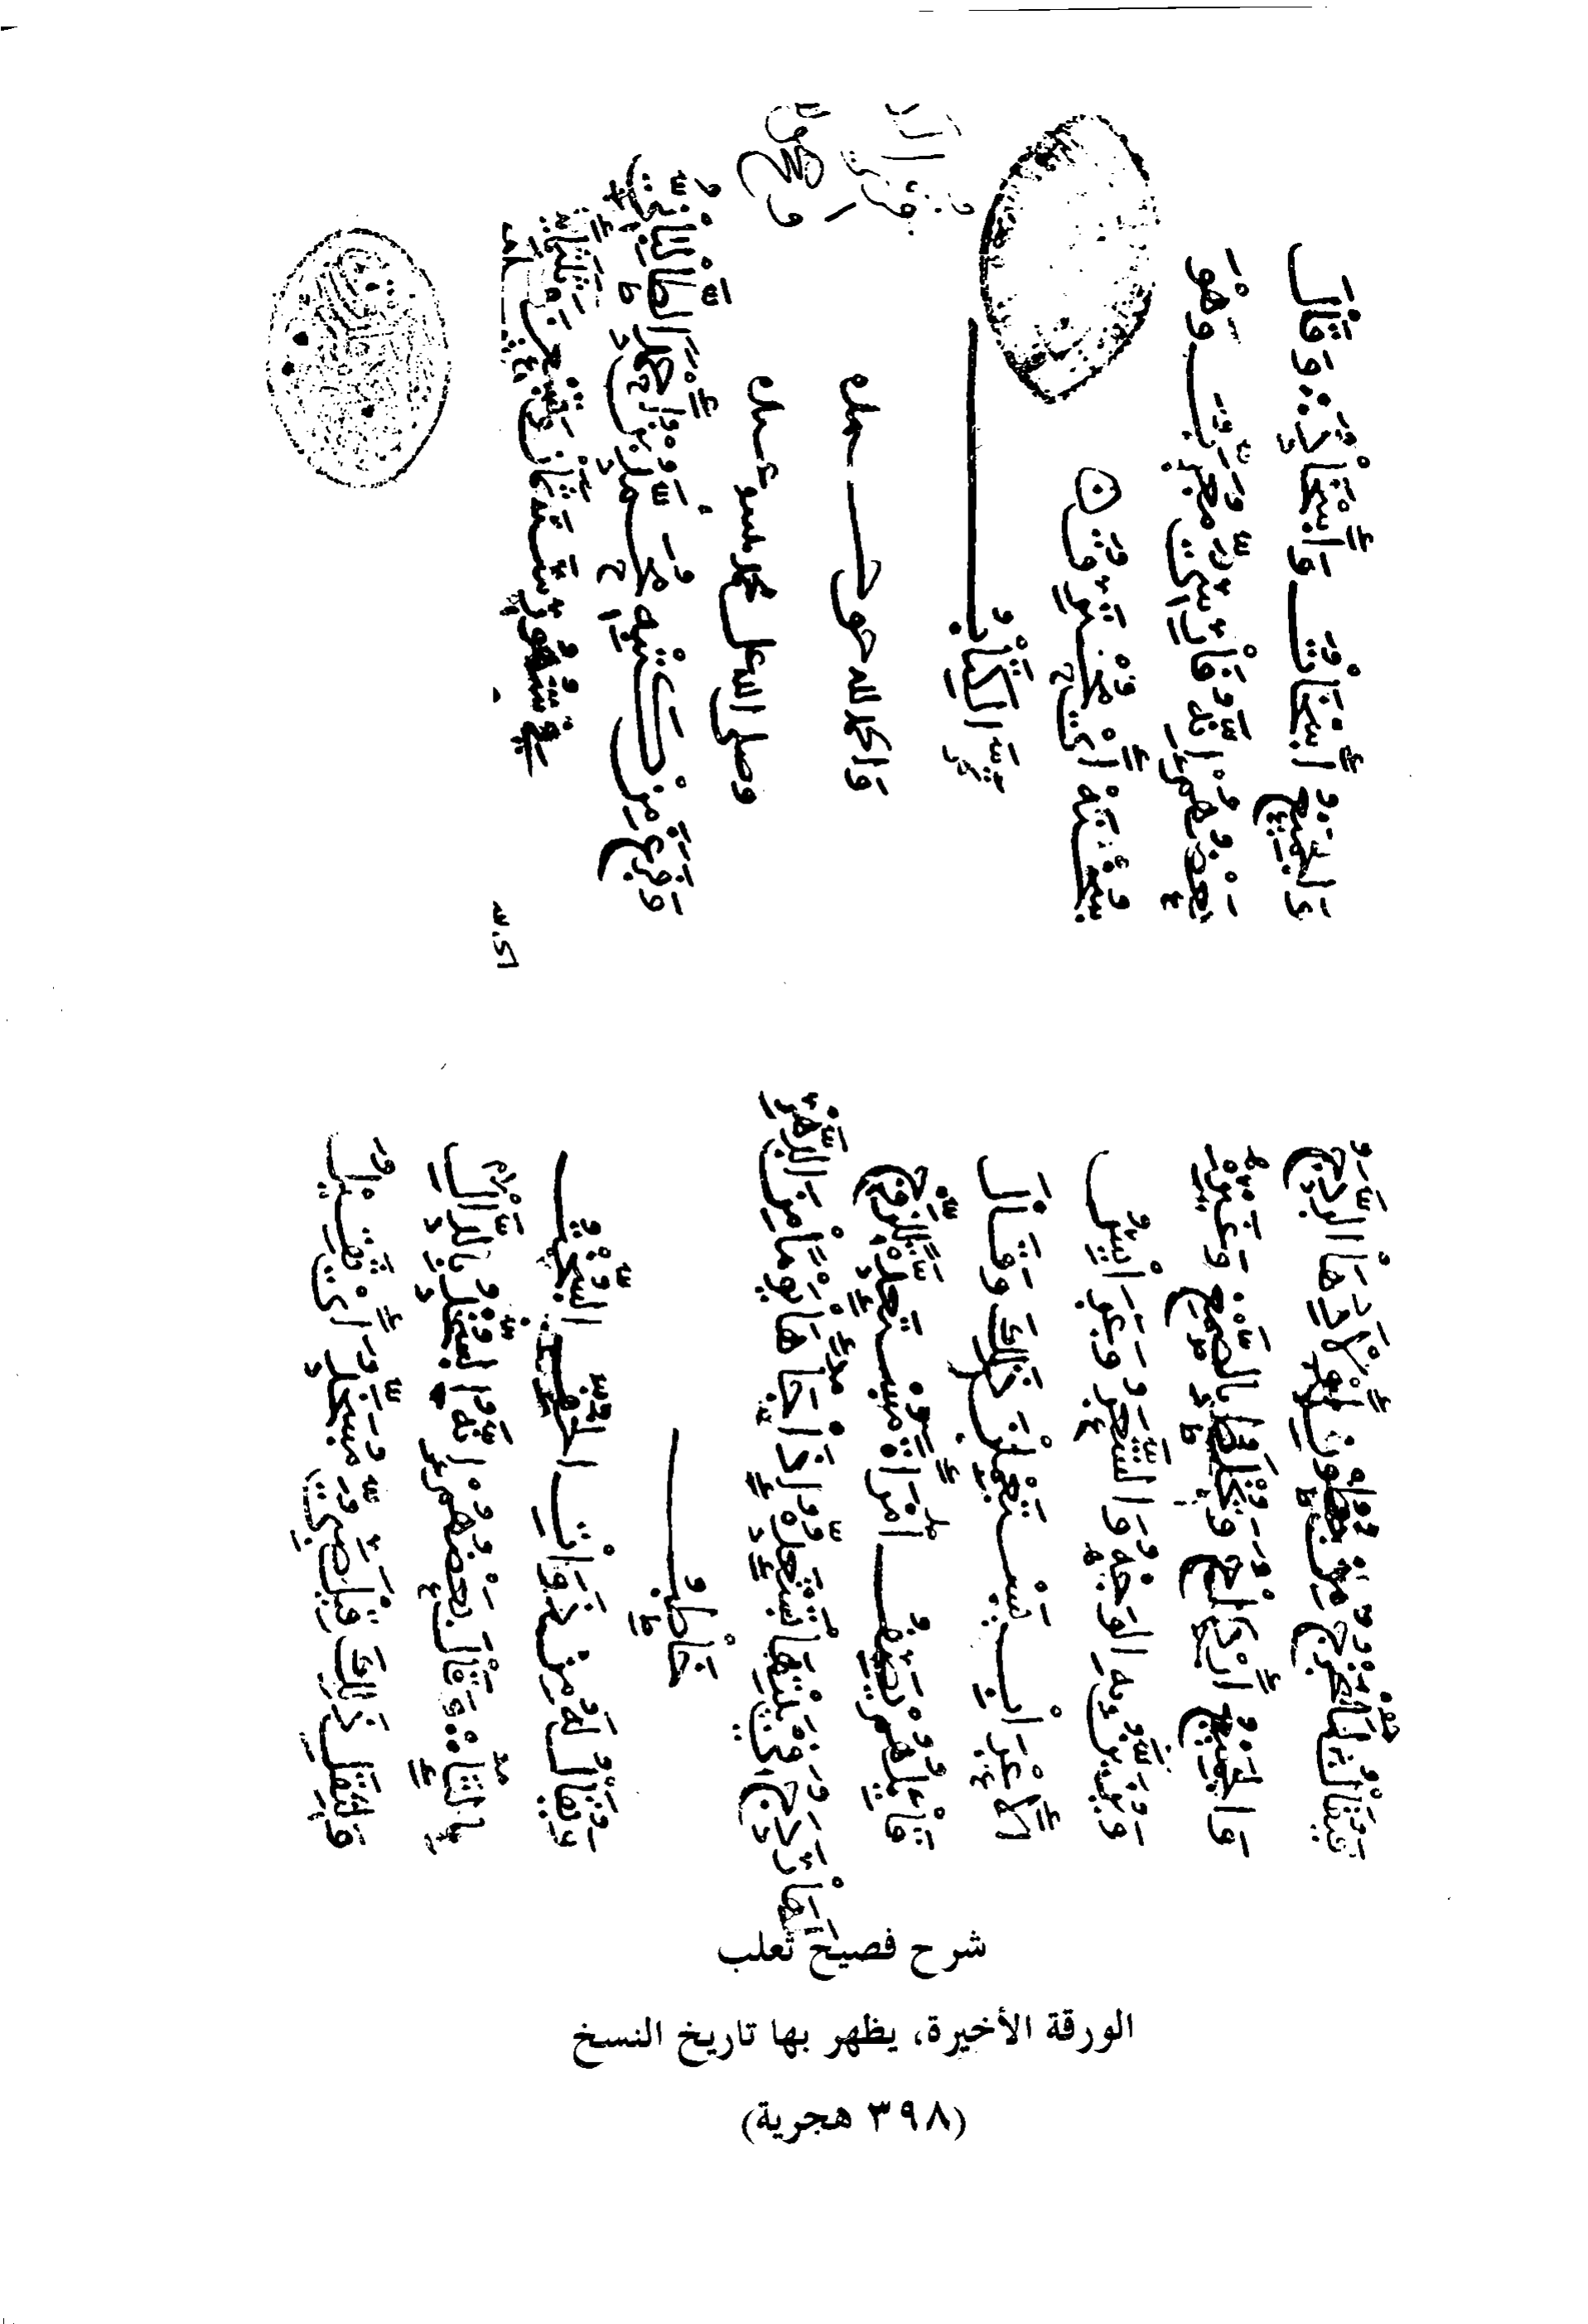 فيقال لما يخرج من بطون أولادها الردج
والجميع أرداج وتخلط بالصمغ وغيره
به الوجه والشعر
الأعراب يستعملن ذلك وقال
قائلهم يصف امرأة مستعدة للتزوج
لها ردج في بيتها تستعده إذا جاءها يوما من الدهر
خاطب
ويقال له من ذوات الخف السخت
بالتاء وقال بعضهم إنه السخد بالدال
ذلك قيل صبي مسخد أي ثقيل
والجميع أسخات وأسخاد وقال
بعضهم إنه فارسي معرب وهو
سخته أي محترق
تم الكتاب
والحمد لله حق حمده
وصلى الله على محمد نبيه وعبده
وفرغ من كتبه محمد بن أحمد الطالقاني
في شهور سنة ثمان وتسعين وثلثمائة
شرح فصيح ثعلب
الورقة الأخيرة، يظهر بها تاريخ النسخ
(٣٩٨ هجرية)